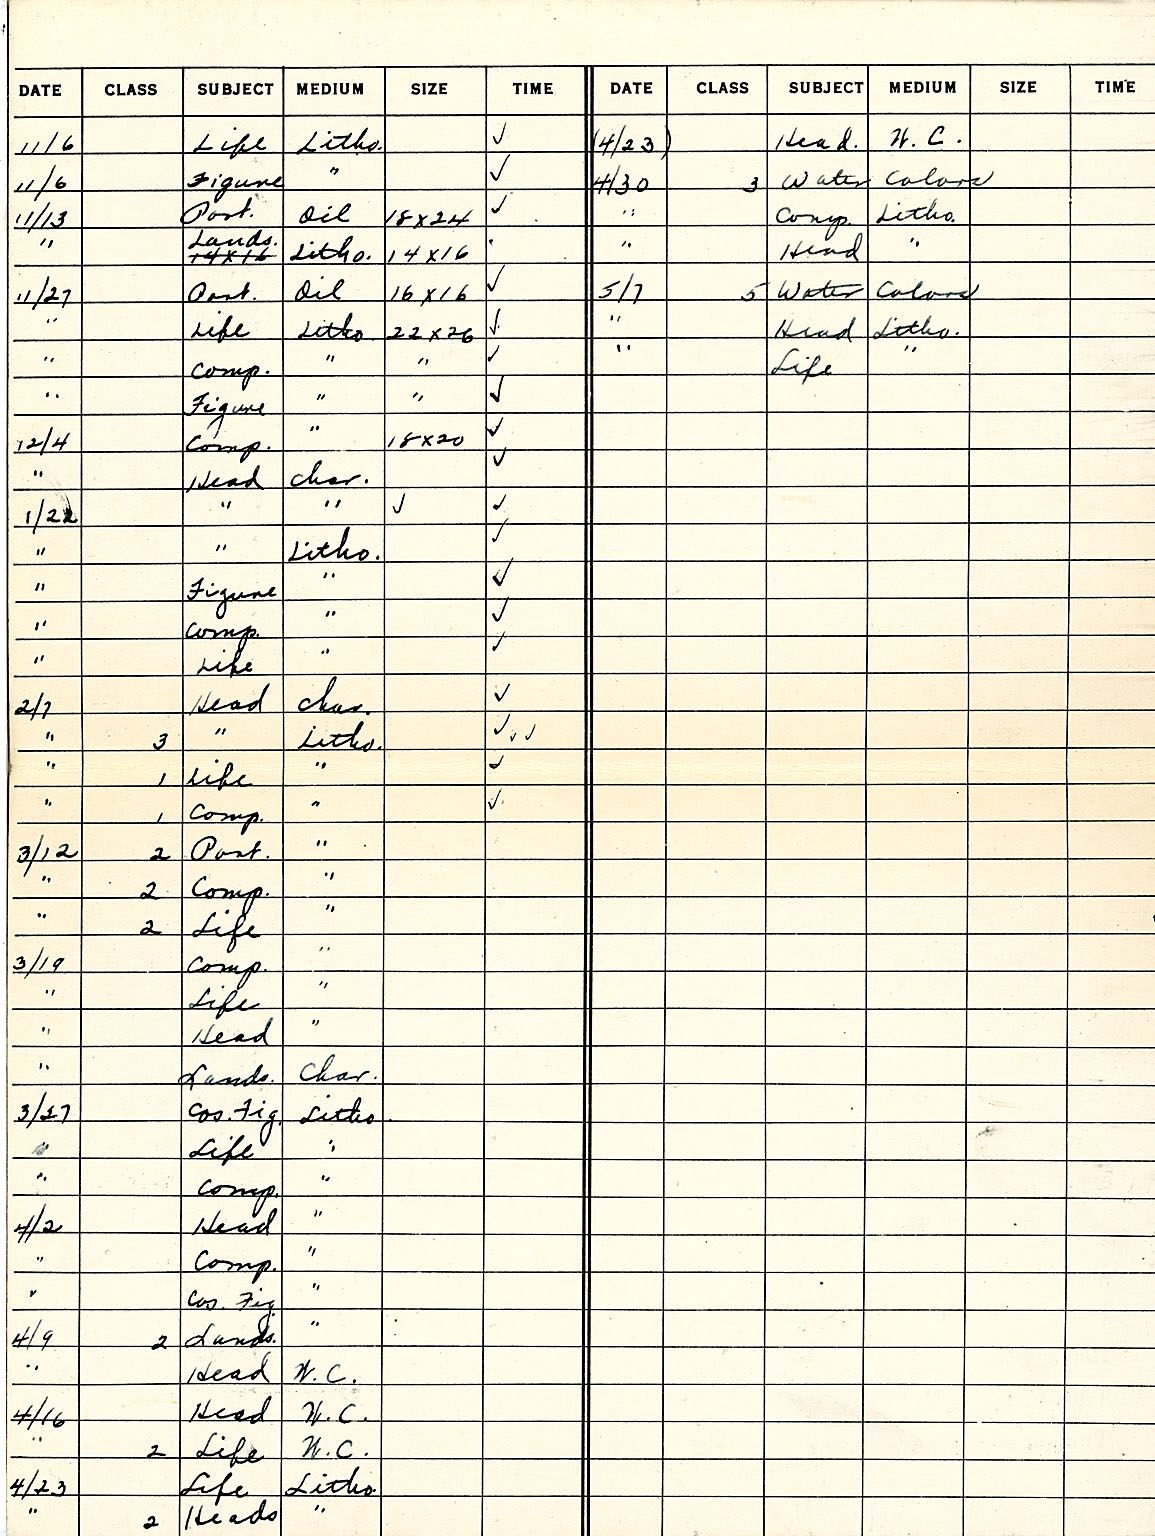 DATE CLASS SUBJECT MEDIUM SIZE TIME
11/6 Life Litho. ✓
11/6 Figure " ✓
11/13 Port. Oil 18x24 ✓
" Lands. 14x16 Litho. 14x16
11/27 Port. Oil 16x16 ✓
" Life Litho 22x26 ✓
" Comp. " " ✓
" Figure " " ✓
12/4 Comp. " 18x20 ✓
" Head Char. ✓
1/22 " " ✓ ✓
" " Litho. ✓
" Figure " ✓
" Comp. " ✓
" Life " ✓
2/7 Head Char. ✓
" 3 " Litho. ✓✓✓
" 1 Life " ✓
" 1 Comp. " ✓
3/12 2 Port. "
" 2 Comp. "
" 2 Life "
3/19 Comp. "
" Life "
" Head "
" Lands. Char.
3/27 Cos. Fig. Litho.
" Life "
" Comp. "
4/2 Head "
" Comp. "
" Cos. Fig. "
4/9 2 Lands. "
" Head W.C.
4/16 Head W.C.
" 2 Life W.C.
4/23 Life Litho
" 2 Heads "
DATE CLASS SUBJECT MEDIUM SIZE TIME
(4/23) Head. W.C.
4/30 3 Water Colors
" Comp. Litho.
" Head "
5/7 5 Water Colors
" Head Litho.
" Life "